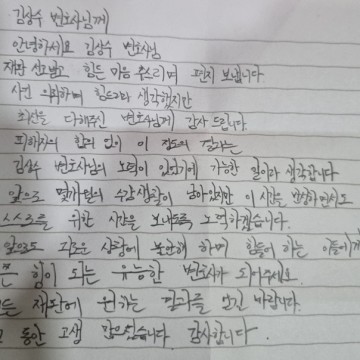 김상수 변호사님께
안녕하세요 김상수 변호사님
재판 선고받고 힘든 마음 추스리며 편지 보냅니다
사건 의뢰하며 힘드리라 생각했지만
최선을 다해주신 변호사님께 감사 드립니다.
피해자의 합의 없이 이 정도의 결과는
김상수 변호사님의 노력이 있었기에 가능한 일이라 생각합니다
앞으로 몇개월의 수감생활이 남아있지만 이 시간을 반성하면서도
스스로를 위한 시간을 보내도록 노력하겠습니다.
앞으로도 괴로운 상황에 하며 힘들어 하는 이들에게
큰 힘이 되는 유능한 변호사가 되어주세요.
모든 재판에 원하는 결과를 얻길 바랍니다.
그 동안 고생 많으셨습니다. 감사합니다.